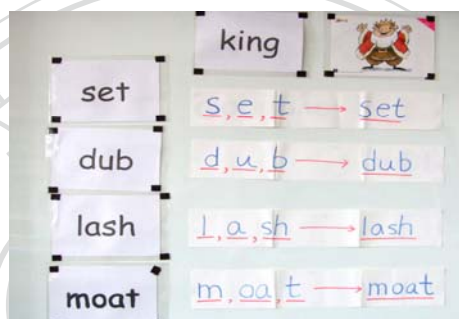 king
set s, e, t → set
dub d, u, b → dub
lash l, a, sh → lash
moat m, oa, t → moat